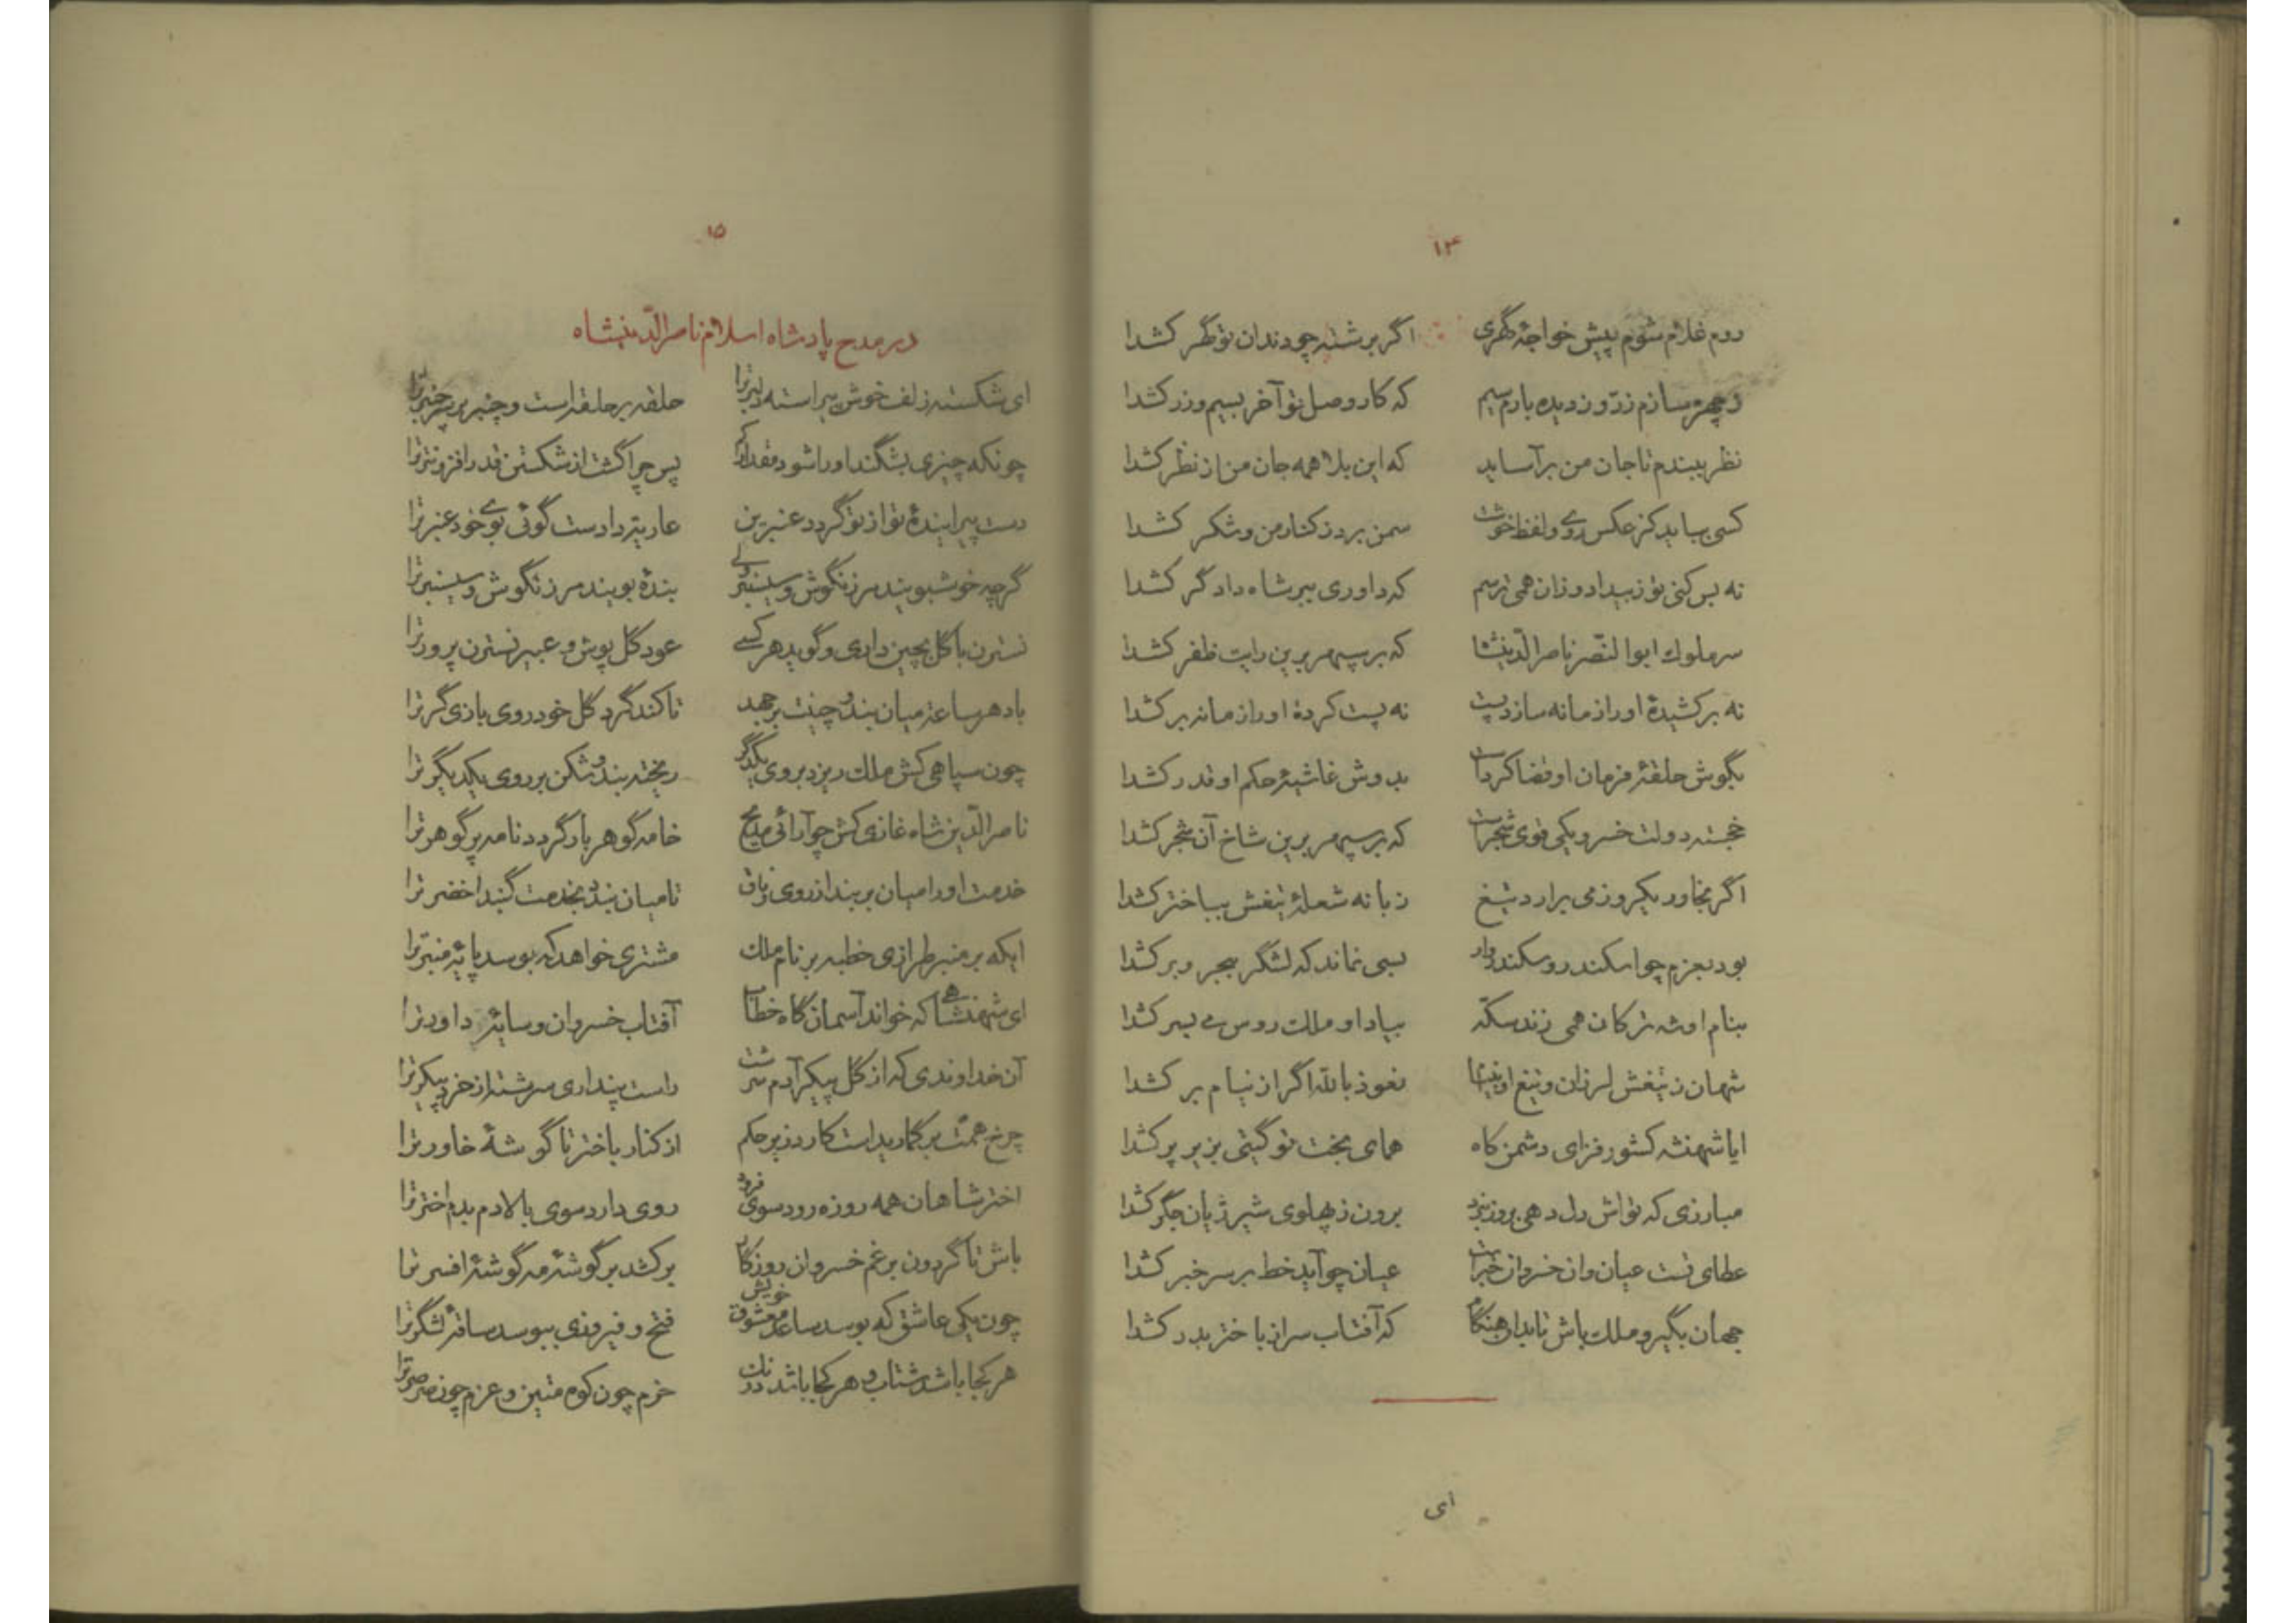 ۱۴
روم غلام شوم پیش خواجهٔ گهری اگر برشته چو دندان تو گهر کشدا
ز چهره سازم زرّ و ز دیده بارم سیم که کار وصل تو آخر بسیم و زر کشدا
نظر ببندم تا جان من برآساید که این بلا همه جان من از نظر کشدا
کسی بباید کز عکس روی و لفظ خوشت سمن برد ز کنار من و شکر کشدا
نه بس کنی تو ز بیداد وزان همی ترسم که داوری ببر شاه دادگر کشدا
سر ملوک ابوالنّصر ناصرالدّینشا که بر سپهر برین رایت ظفر کشدا
نه برکشیدهٔ او را زمانه سازد پست نه پست کردهٔ او را زمانه برکشدا
بگوش حلقهٔ فرمان او قضا کرداست بدوش غاشیهٔ حکم او قدر کشدا
خجسته دولت خسرو یکی قوی شجراست که بر سپهر برین شاخ آن شجر کشدا
اگر بخاور یکروز می برارد تیغ زبانه شعلهٔ تیغش بباختر کشدا
بود بعزم چو اسکندر و سکندروار بسی نماند که لشگر ببحر و بر کشدا
بنام او شه ترکان همی زند سکّه بیاد او ملک روس می بسر کشدا
شهان ز تیغش لرزان و تیغ او بنیام نعوذ بالله اگر از نیام بر کشدا
ایا شهنشه کشور فزای دشمن کاه همای بخت تو گیتی بزیر پر کشدا
مبارزی که تواش دل دهی بروز نبرد برون ز پهلوی شیر ژیان جگر کشدا
عطای تست عیان وان خسروان خبراست عیان چو آید خط بر سر خبر کشدا
جهان بگیر و ملک باش تا بدان هنگام که آفتاب سر از باختر بدر کشدا
ای
۱۵
در مدح پادشاه اسلام ناصرالدّینشاه
ای شکسته زلف خوش پیراسته دلبر ترا حلقه بر حلقه است و چنبر بر سر چنبر ترا
چونکه چیزی بشگند او را شود مقدار کم پس چرا گشت از شکستن قدر افزونتر ترا
دست پیرایندهٔ تو از تو گردد عنبرین عاریت دادست گوئی بوی خود عنبر ترا
گرچه خوشبویند مرزنگوش و سیسنبر ولی بندهٔ بویند مرزنگوش و سیسنبر ترا
نسترن با گل بچین داری و گوید هر کسی عود گل پوش و عبیر نسترن پرور ترا
باد هر ساعت میان بند و چینت برجهد تا کند گرد گل خودروی بازی گر ترا
چون سپاهی کش ملک ریزد بروی یکدگر ریخته بند و شکن بر روی یکدیگر ترا
ناصرالدّین شاه غازی کش چو آرائی مدیح خامه گوهر بار گردد نامه پر گوهر ترا
خدمت او را میان بربند از روی زمان تا میان بندد بخدمت گنبد اخضر ترا
ایکه بر منبر طرازی خطبه بر نام ملک مشتری خواهد که بوسد پایهٔ منبر ترا
ای شهنشاهی که خواند آسمان گاه خطاب آفتاب خسروان و سایهٔ داور ترا
آن خداوندی که از گل پیکر آدم سرشت راست پنداری سرشته از خرد پیکر ترا
چرخ همّت بر گماریداست کارد زیر حکم از کنار باختر تا گوشهٔ خاور ترا
اختر شاهان همه روزه رود سوی فرود روی دارد سوی بالا دم بدم اختر ترا
باش تا گردون برغم خسروان روزگار برکشد بر گوشهٔ مه گوشهٔ افسر ترا
چون یکی عاشق که بوسد ساعد معشوق خویش فتح و فیروزی ببوسد ساقهٔ لشگر ترا
هر کجا باشد شتاب و هر کجا باشد درنگ حزم چون کوه متین و عزم چون صرصر ترا